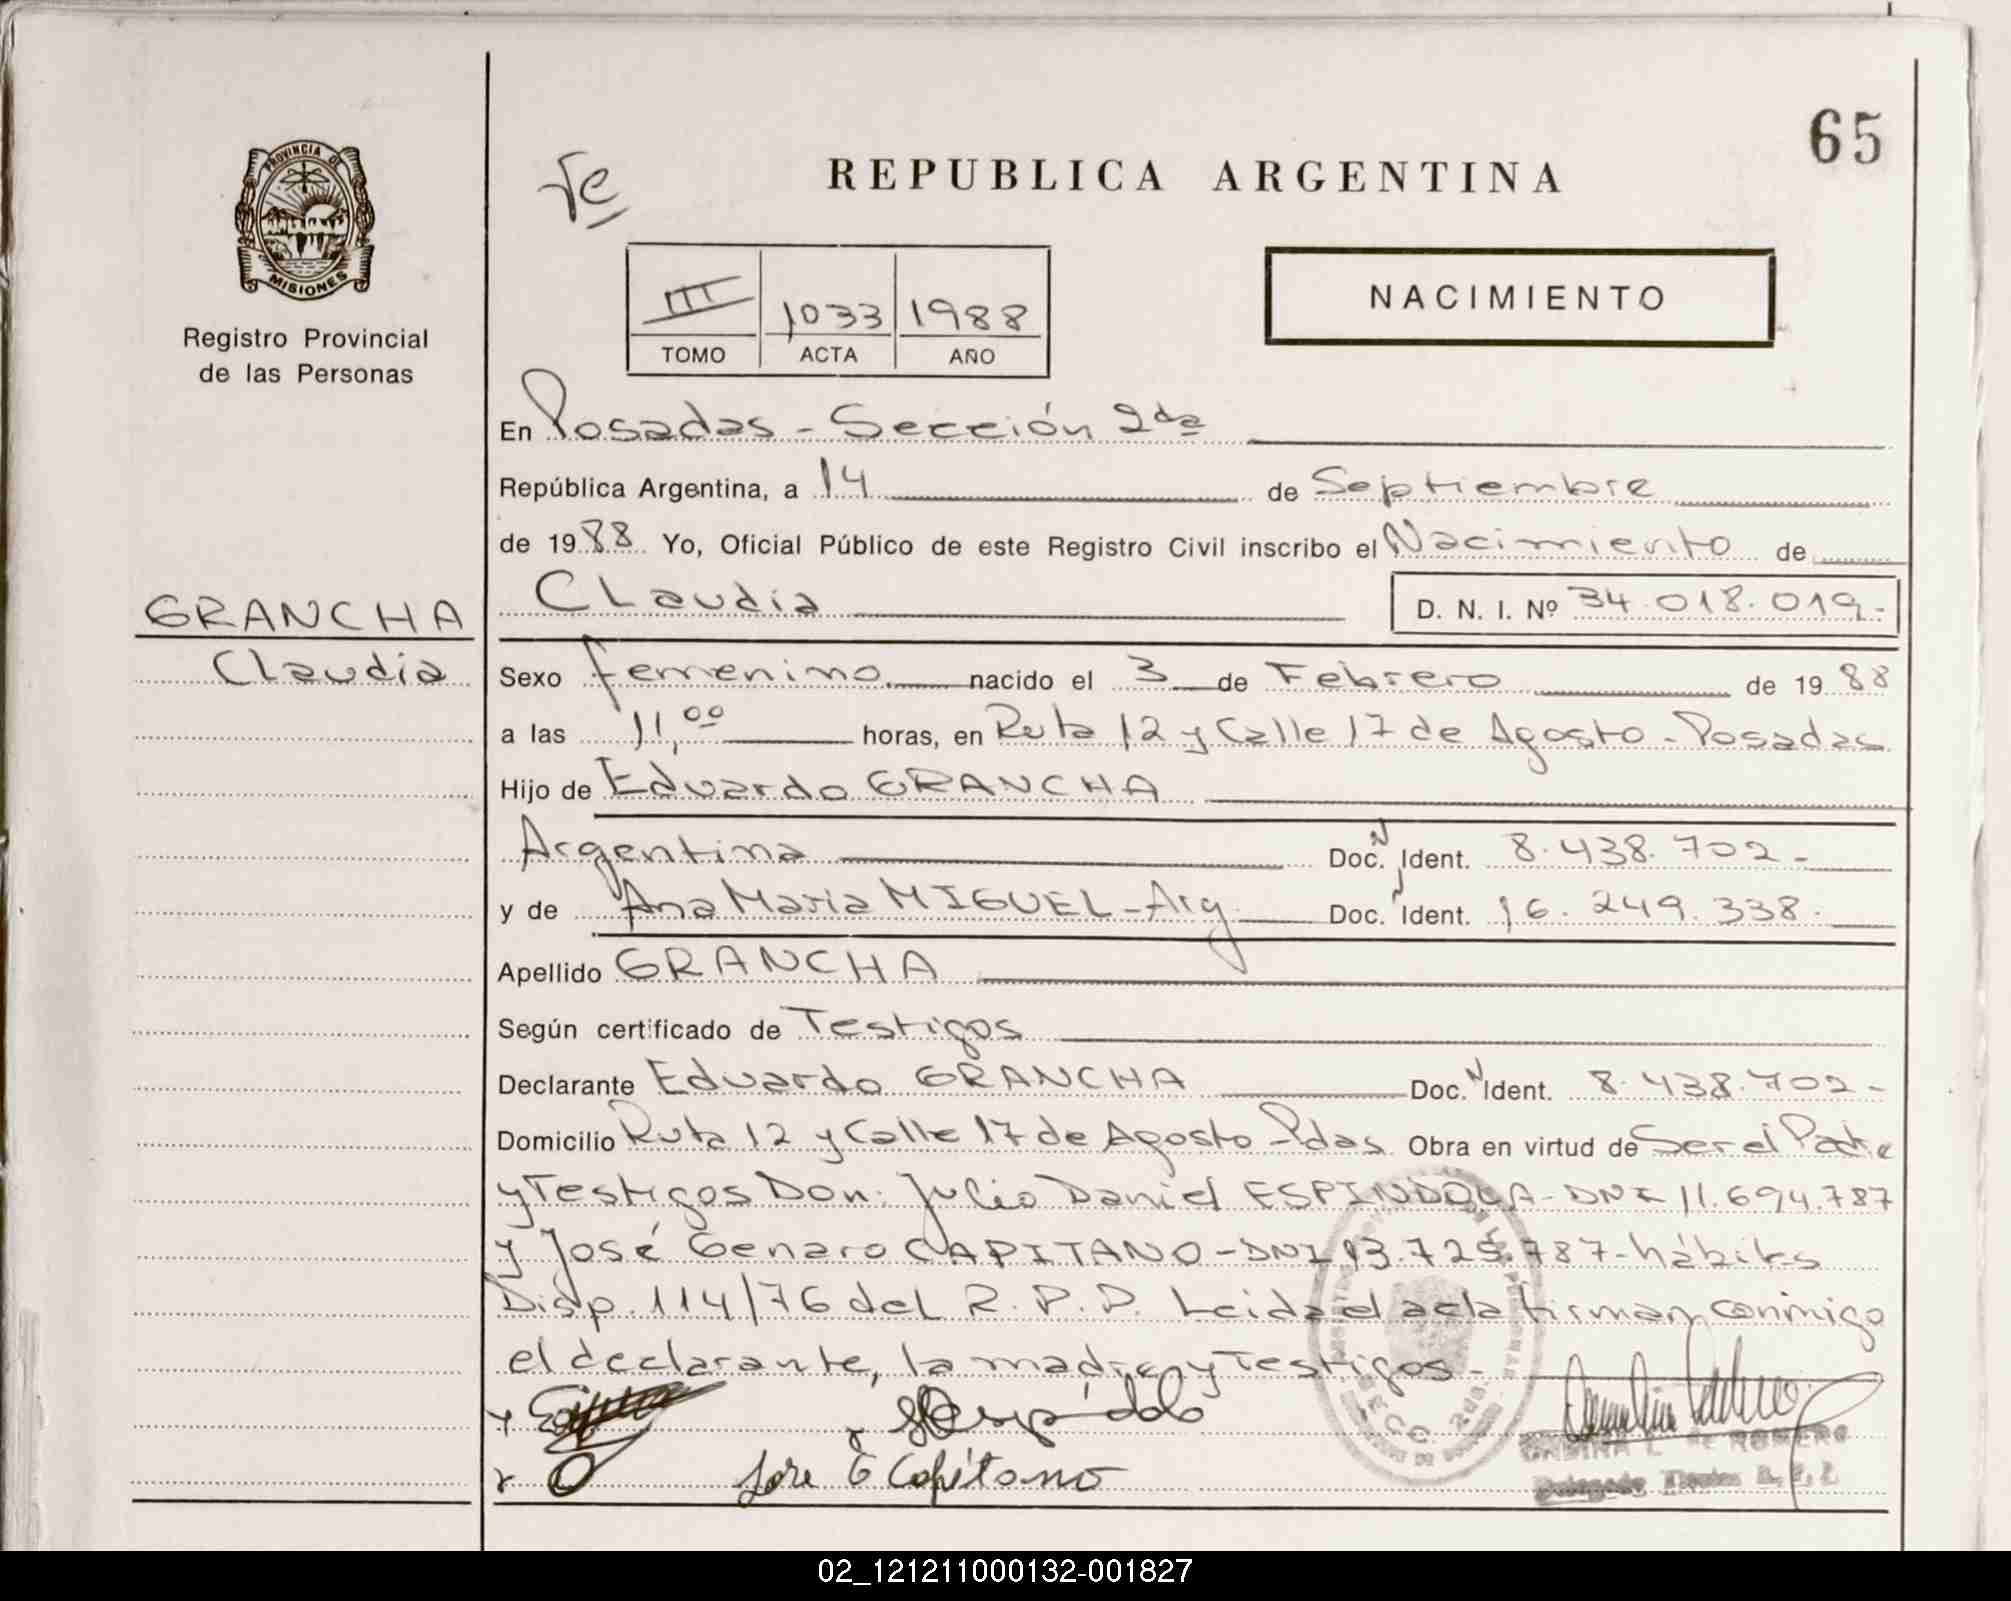 65
PROVINCIA DE
MISIONES
Registro Provincial
de las Personas
REPUBLICA ARGENTINA
III 1033 1988
TOMO ACTA AÑO
NACIMIENTO
En Posadas - Sección 2da
República Argentina, a 14 de Septiembre
de 1988 Yo, Oficial Público de este Registro Civil inscribo el Nacimiento de
GRANCHA
Claudia
Claudia D. N. I. Nº 34.018.019.-
Sexo femenino nacido el 3 de Febrero de 1988
a las 11,00 horas, en Ruta 12 y Calle 17 de Agosto - Posadas
Hijo de Eduardo GRANCHA
Argentina Doc. Ident. 8.438.702-
y de Ana Maria MIGUEL - Arg. Doc. Ident. 16.249.338.
Apellido GRANCHA
Según certificado de Testigos
Declarante Eduardo GRANCHA Doc. Ident. 8.438.702-
Domicilio Ruta 12 y Calle 17 de Agosto - Pdas. Obra en virtud de Ser el Padre
y Testigos Don: Julio Daniel ESPINDOLA - DNI 11.694.787
y José Genaro CAPITANO - DNI 13.725.787 - hábiles
Disp. 114/76 del R.P.P. Leida el acta firman conmigo
el declarante, la madre y Testigos -
Jose G Capitano
L. de ROMERO
02_121211000132-001827